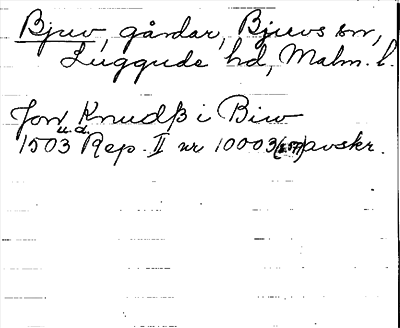 Bjuv, gårdar, Bjuvs sn,
Luggude hd, Malm. l.
Jon Knudß i Biw
u.d.
1503 Rep. II nr 10003 avskr.